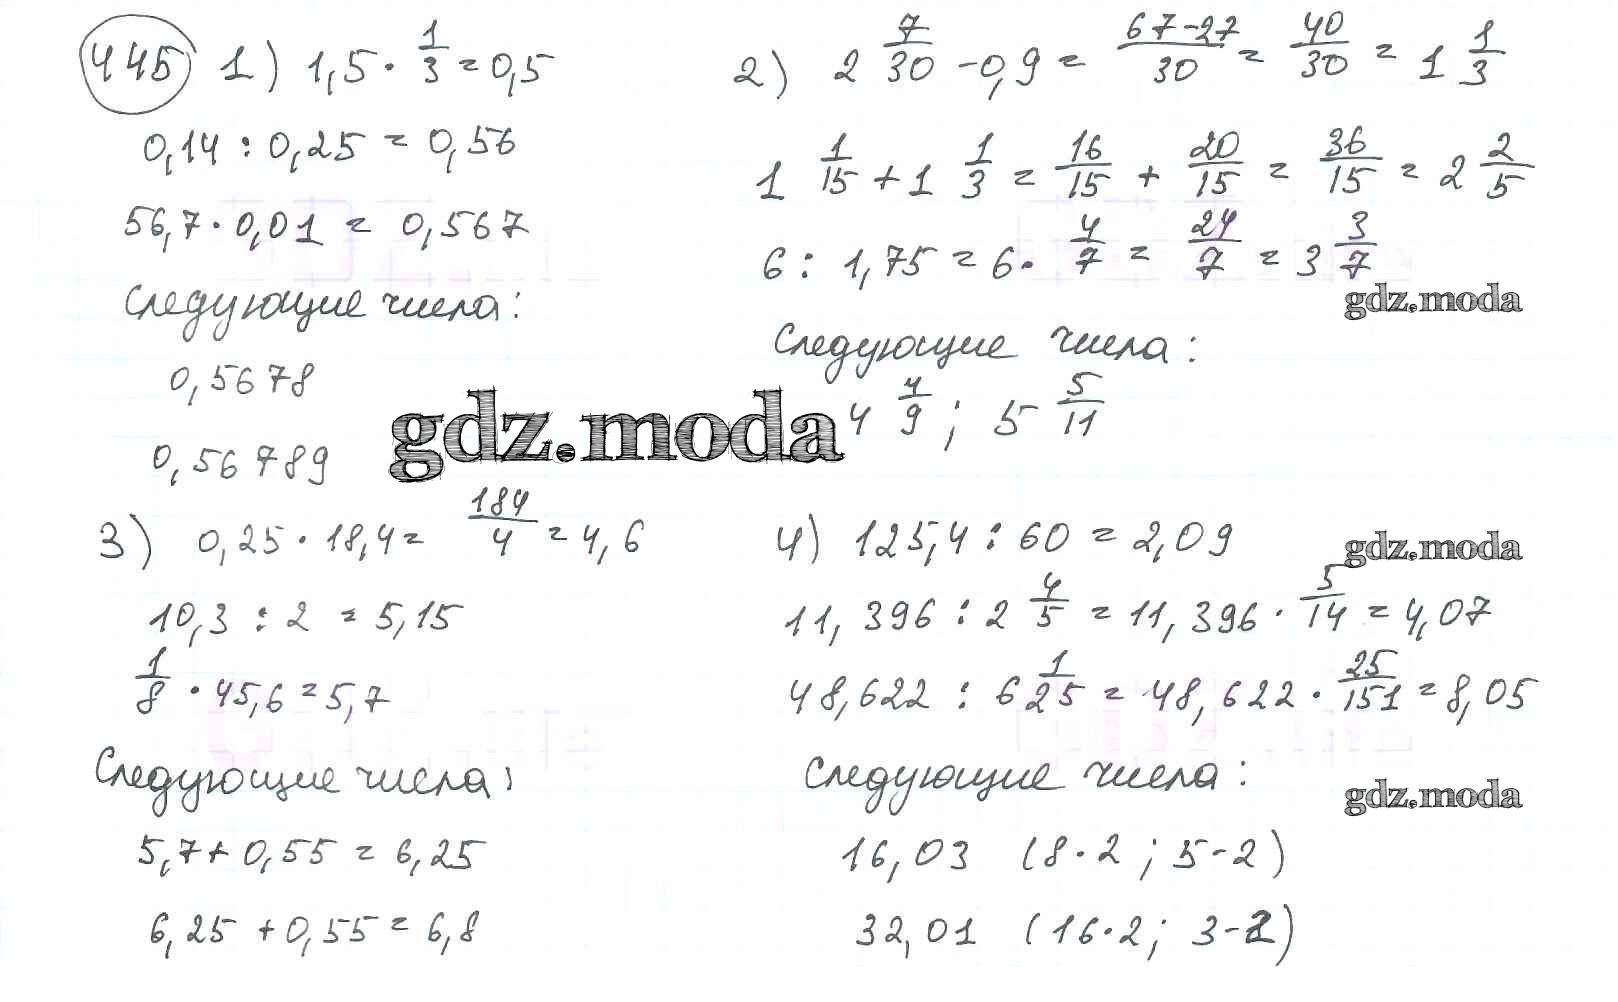 445 1) 1,5 · 1/3 = 0,5
0,14 : 0,25 = 0,56
56,7 · 0,01 = 0,567
Следующие числа:
0,5678
0,56789
2) 2 7/30 - 0,9 = 67-27/30 = 40/30 = 1 1/3
1 1/15 + 1 1/3 = 16/15 + 20/15 = 36/15 = 2 2/5
6 : 1,75 = 6 · 4/7 = 24/7 = 3 3/7
gdz.moda
Следующие числа:
4 4/9 ; 5 5/11
gdz.moda
3) 0,25 · 18,4 = 184/4 = 4,6
10,3 : 2 = 5,15
1/8 · 45,6 = 5,7
Следующие числа:
5,7 + 0,55 = 6,25
6,25 + 0,55 = 6,8
4) 125,4 : 60 = 2,09
gdz.moda
11,396 : 2 4/5 = 11,396 · 5/14 = 4,07
48,622 : 6 1/25 = 48,622 · 25/151 = 8,05
Следующие числа:
gdz.moda
16,03 (8·2 ; 5-2)
32,01 (16·2 ; 3-2)